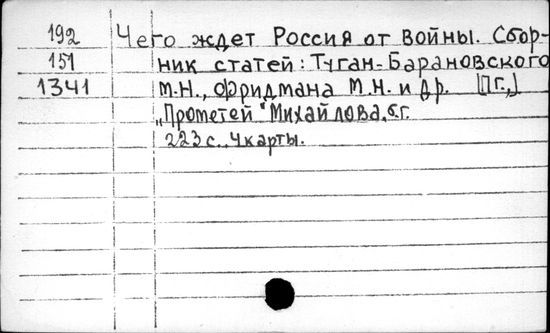 192 Чего ждет Россия от войны. Сбор-
151 ник статей: Туган-Барановского
1341 М.Н., Фридмана М.Н. и др. [Пг.,]
„Прометей" Михайлова, б.г.
223 с., 4 карты.